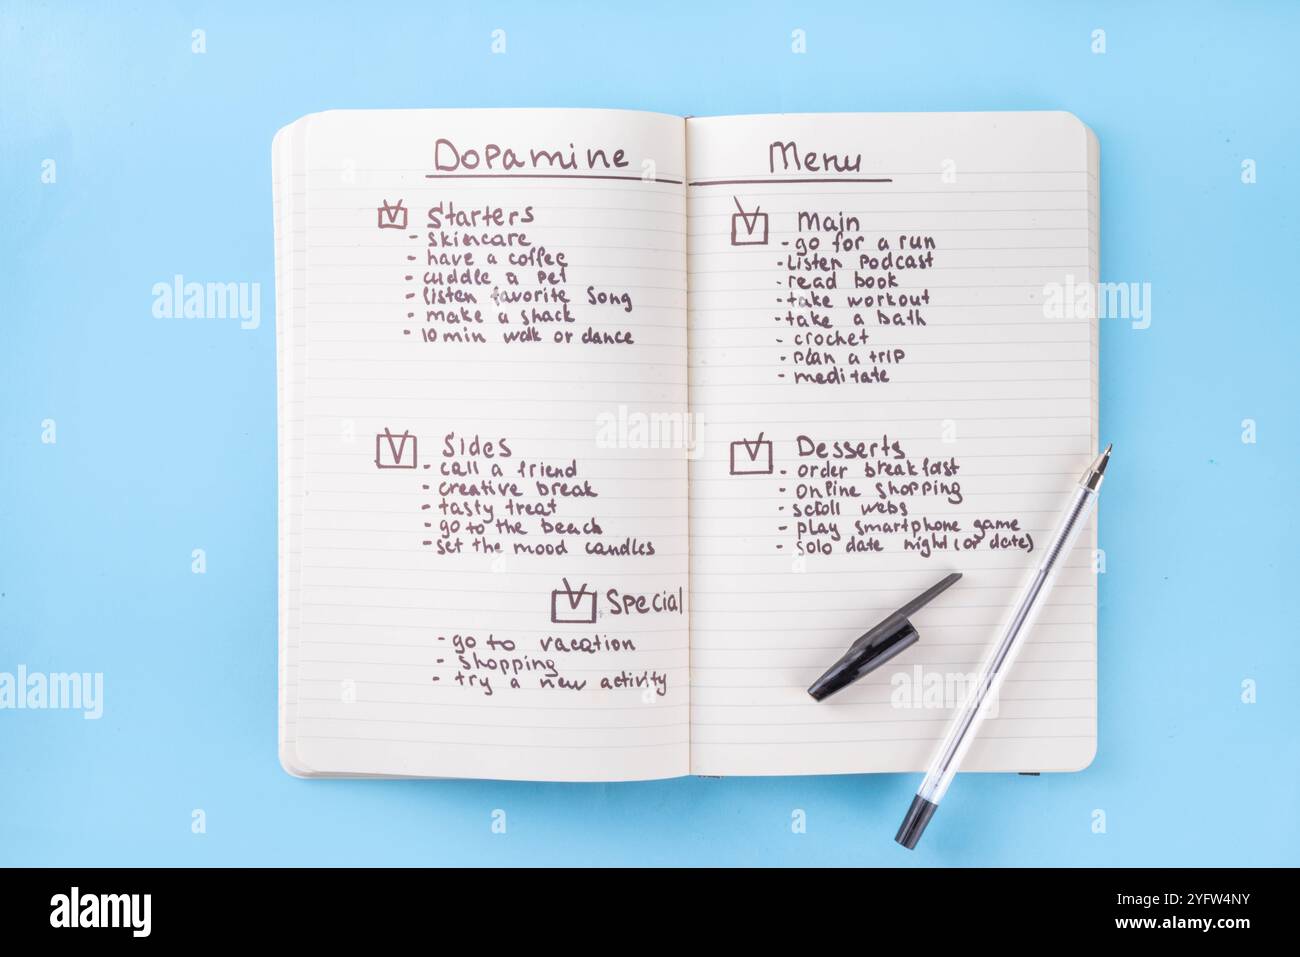 Dopamine Menu
Starters
- skincare
- have a coffee
- cuddle a pet
- listen favorite song
- make a snack
- 10 min walk or dance
Sides
- call a friend
- creative break
- tasty treat
- go to the beach
- set the mood candles
Special
- go to vacation
- shopping
- try a new activity
Main
- go for a run
- Listen podcast
- read book
- take workout
- take a bath
- crochet
- plan a trip
- meditate
Desserts
- order breakfast
- online shopping
- scroll webs
- play smartphone game
- solo date night (or date)
alamy
alamy
Image ID: 2YFW4NY
www.alamy.com